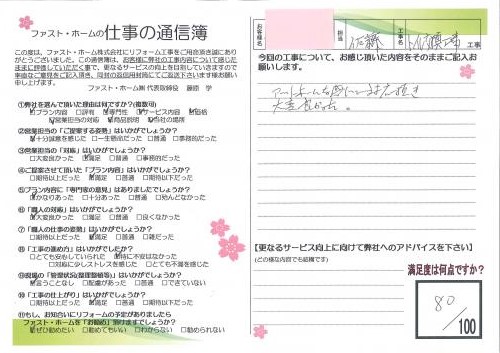 ファスト・ホームの仕事の通信簿
この度は、ファスト・ホーム株式会社にリフォーム工事をご用命頂き誠にあり
がとうございました。この通信簿は、お客様に弊社の工事内容について感じた
ままに評価していただく事で、更なるサービスの向上を目指していきますので
率直なご意見をご記入頂き、同封の返信用封筒にてご返送下さいます様お願い
申し上げます。
ファスト・ホーム㈱ 代表取締役 藤原 学
①弊社を選んで頂いた理由は何ですか?(複数可)
プラン内容 □評判 専門性 サービス内容 価格
営業担当の対応 商品説明 弊社の場所
②営業担当の「ご提案する姿勢」はいかがでしょうか?
十分誠意を感じた □一生懸命だった □普通 □事務的だった
③営業担当の「対応」はいかがでしょうか?
□大変良かった 満足 □普通 □事務的だった
④ご提案させて頂いた「プラン内容」はいかがでしょうか?
□期待以上だった 満足 □普通 □期待以下だった
⑤プラン内容に「専門家の意見」はありましたでしょうか?
かなりあった □十分あった □普通 □殆んどなかった
⑥「職人の対応」はいかがでしょうか?
大変良かった □満足 □普通 □良くなかった
⑦「職人の仕事の姿勢」はいかがでしょうか?
□期待以上だった 満足 □普通 □雑だった
⑧「工事の進め方」はいかがでしたか?
□とても安心していられた 特に不安はなかった
□対応に少しストレスを感じた □とても不満を感じた
⑨現場の「管理状況(整理整頓等)」はいかがでしょうか?
言うことなし □配慮があった □普通 □できていない
⑩「工事の仕上がり」はいかがでしょうか?
□期待以上だった 満足 □普通 □期待以下だった
⑪もし、お知り合いにリフォームの予定がありましたら
ファスト・ホームを「お勧め」頂けますでしょうか?
ぜひ勧めたい □勧めてもいい □わからない □勧められない
お客様名
担当 佐藤
工事名 工事
今回の工事について、お感じ頂いた内容をそのままご記入お
願いします。
大変良かった。
【更なるサービス向上に向けて弊社へのアドバイスを下さい】
(どの様な内容でも結構です)
満足度は何点ですか?
80
/100